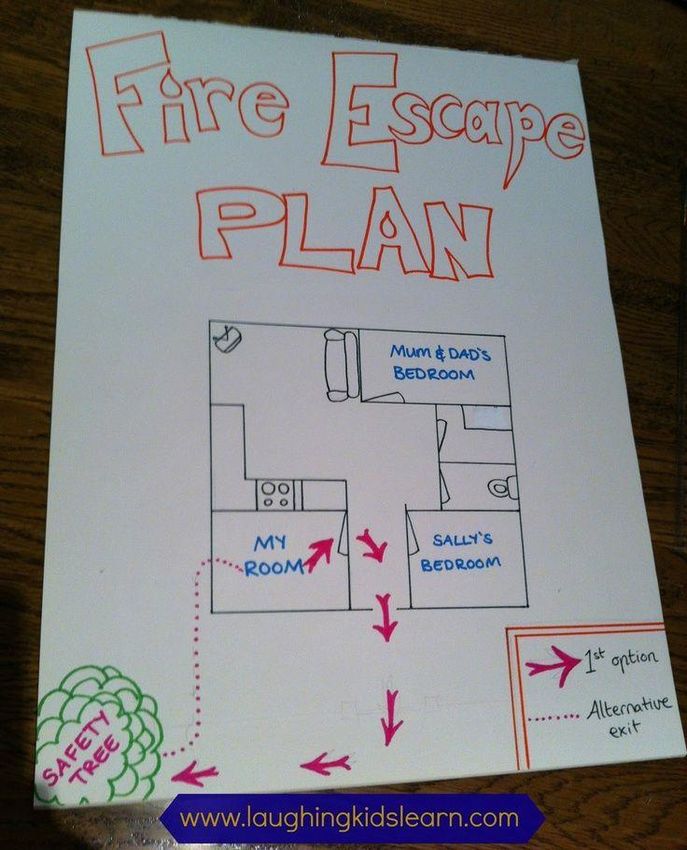 Fire Escape
PLAN
Mum & DAD'S
BEDROOM
MY
ROOM
SALLY'S
BEDROOM
1st option
Alternative
exit
SAFETY
TREE
www.laughingkidslearn.com